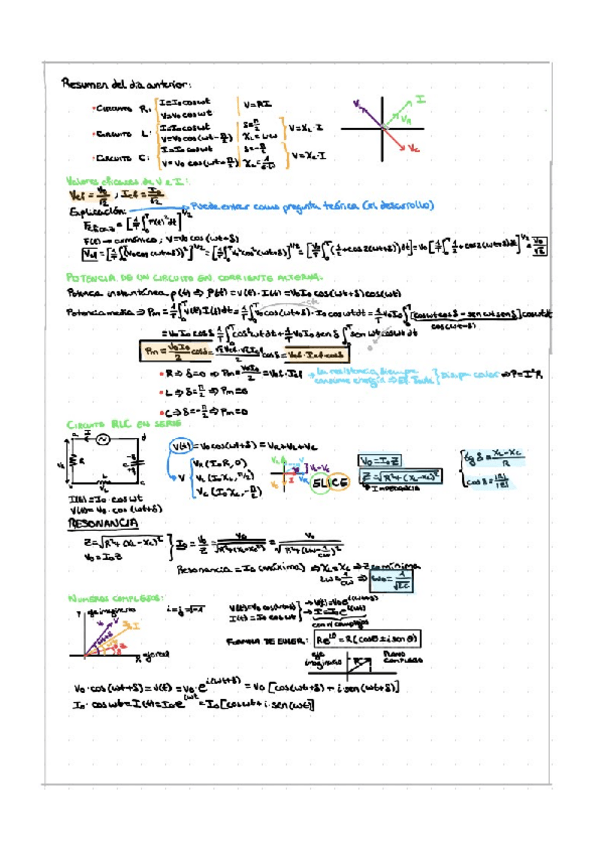 Resumen del dia anterior:
• Circuito R: I=I₀coswt V=V₀coswt V=RI
• Circuito L: I=I₀coswt V=V₀ cos(wt-π/2) δ=π/2 X_L=Lw V=X_L·I
• Circuito C: I=I₀coswt V=V₀ cos(wt+π/2) δ=-π/2 V=X_C·I
V_L I V_R V_C
Valores eficaces de V e I:
Vef=V₀/√2 ; Ief=I₀/√2
Explicación: → Puede entrar como pregunta teórica (el desarrollo)
F(t) → armónica; V=V₀cos(wt+δ)
POTENCIA DE UN CIRCUITO EN CORRIENTE ALTERNA:
Potencia instantánea p(t) ⇒ P(t)=V(t)·I(t)=V₀I₀cos(wt+δ)cos(wt)
Potencia media ⇒ Pm = 1/T∫₀ᵀ V(t)I(t)dt = 1/T∫₀ᵀ V₀cos(wt+δ)·I₀coswtdt = 1/T V₀I₀∫₀ᵀ [coswtcosδ - senwtsenδ]coswtdt
cos(wt+δ)
= V₀I₀cosδ 1/T∫₀ᵀ cos²wtdt + 1/T V₀I₀ senδ∫₀ᵀ senwt coswtdt
Pm = V₀I₀/2 cosδ = √2Vef·√2Ief/2 cosδ = Vef·Ief·cosδ
• R ⇒ δ=0 ⇒ Pm=V₀I₀/2=Vef·Ief → La resistencia siempre consume energía ⇒ Ef. Joule } Disipa calor ⇒ P=I²R
• L ⇒ δ=π/2 ⇒ Pm=0
• C ⇒ δ=-π/2 ⇒ Pm=0
CIRCUITO RLC EN SERIE
V(t)=V₀cos(wt+δ)=V_R+V_L+V_C
V V_R(I₀R,0) V_L(I₀X_L,π/2) V_C(I₀X_C,-π/2)
ELICE
V₀=I₀Z
Z=√R²+(X_L-X_C)²
↳ IMPEDANCIA
tg δ=X_L-X_C/R
cos δ=|R|/|Z|
I(t)=I₀·coswt
V(t)=V₀·cos(wt+δ)
RESONANCIA
Z=√R²+(X_L-X_C)²
V₀=I₀Z
I₀=V₀/Z=V₀/√R²+(X_L-X_C)²=V₀/√R²+(Lw-1/Cw)²
Resonancia = I₀(máxima) ⇒ X_L=X_C ⇒ Z es mínima
Lw=1/Cw ⇒ w₀=1/√LC
NUMEROS COMPLEJOS:
eje imaginario i=j=√-1
V(t)=V₀cos(wt+δ) → V(t)=V₀e^i(wt+δ)
I(t)=I₀coswt → I=I₀e^i(wt)
con nº complejos
eje real
FORMULA DE EULER: Re^iθ=R(cosθ±i senθ)
eje imaginario PLANO COMPLEJO
V₀·cos(wt+δ)=V(t)=V₀·e^i(wt+δ)=V₀[cos(wt+δ)+i·sen(wt+δ)]
I₀·coswt=I(t)=I₀e^iwt=I₀[coswt+i·sen(wt)]